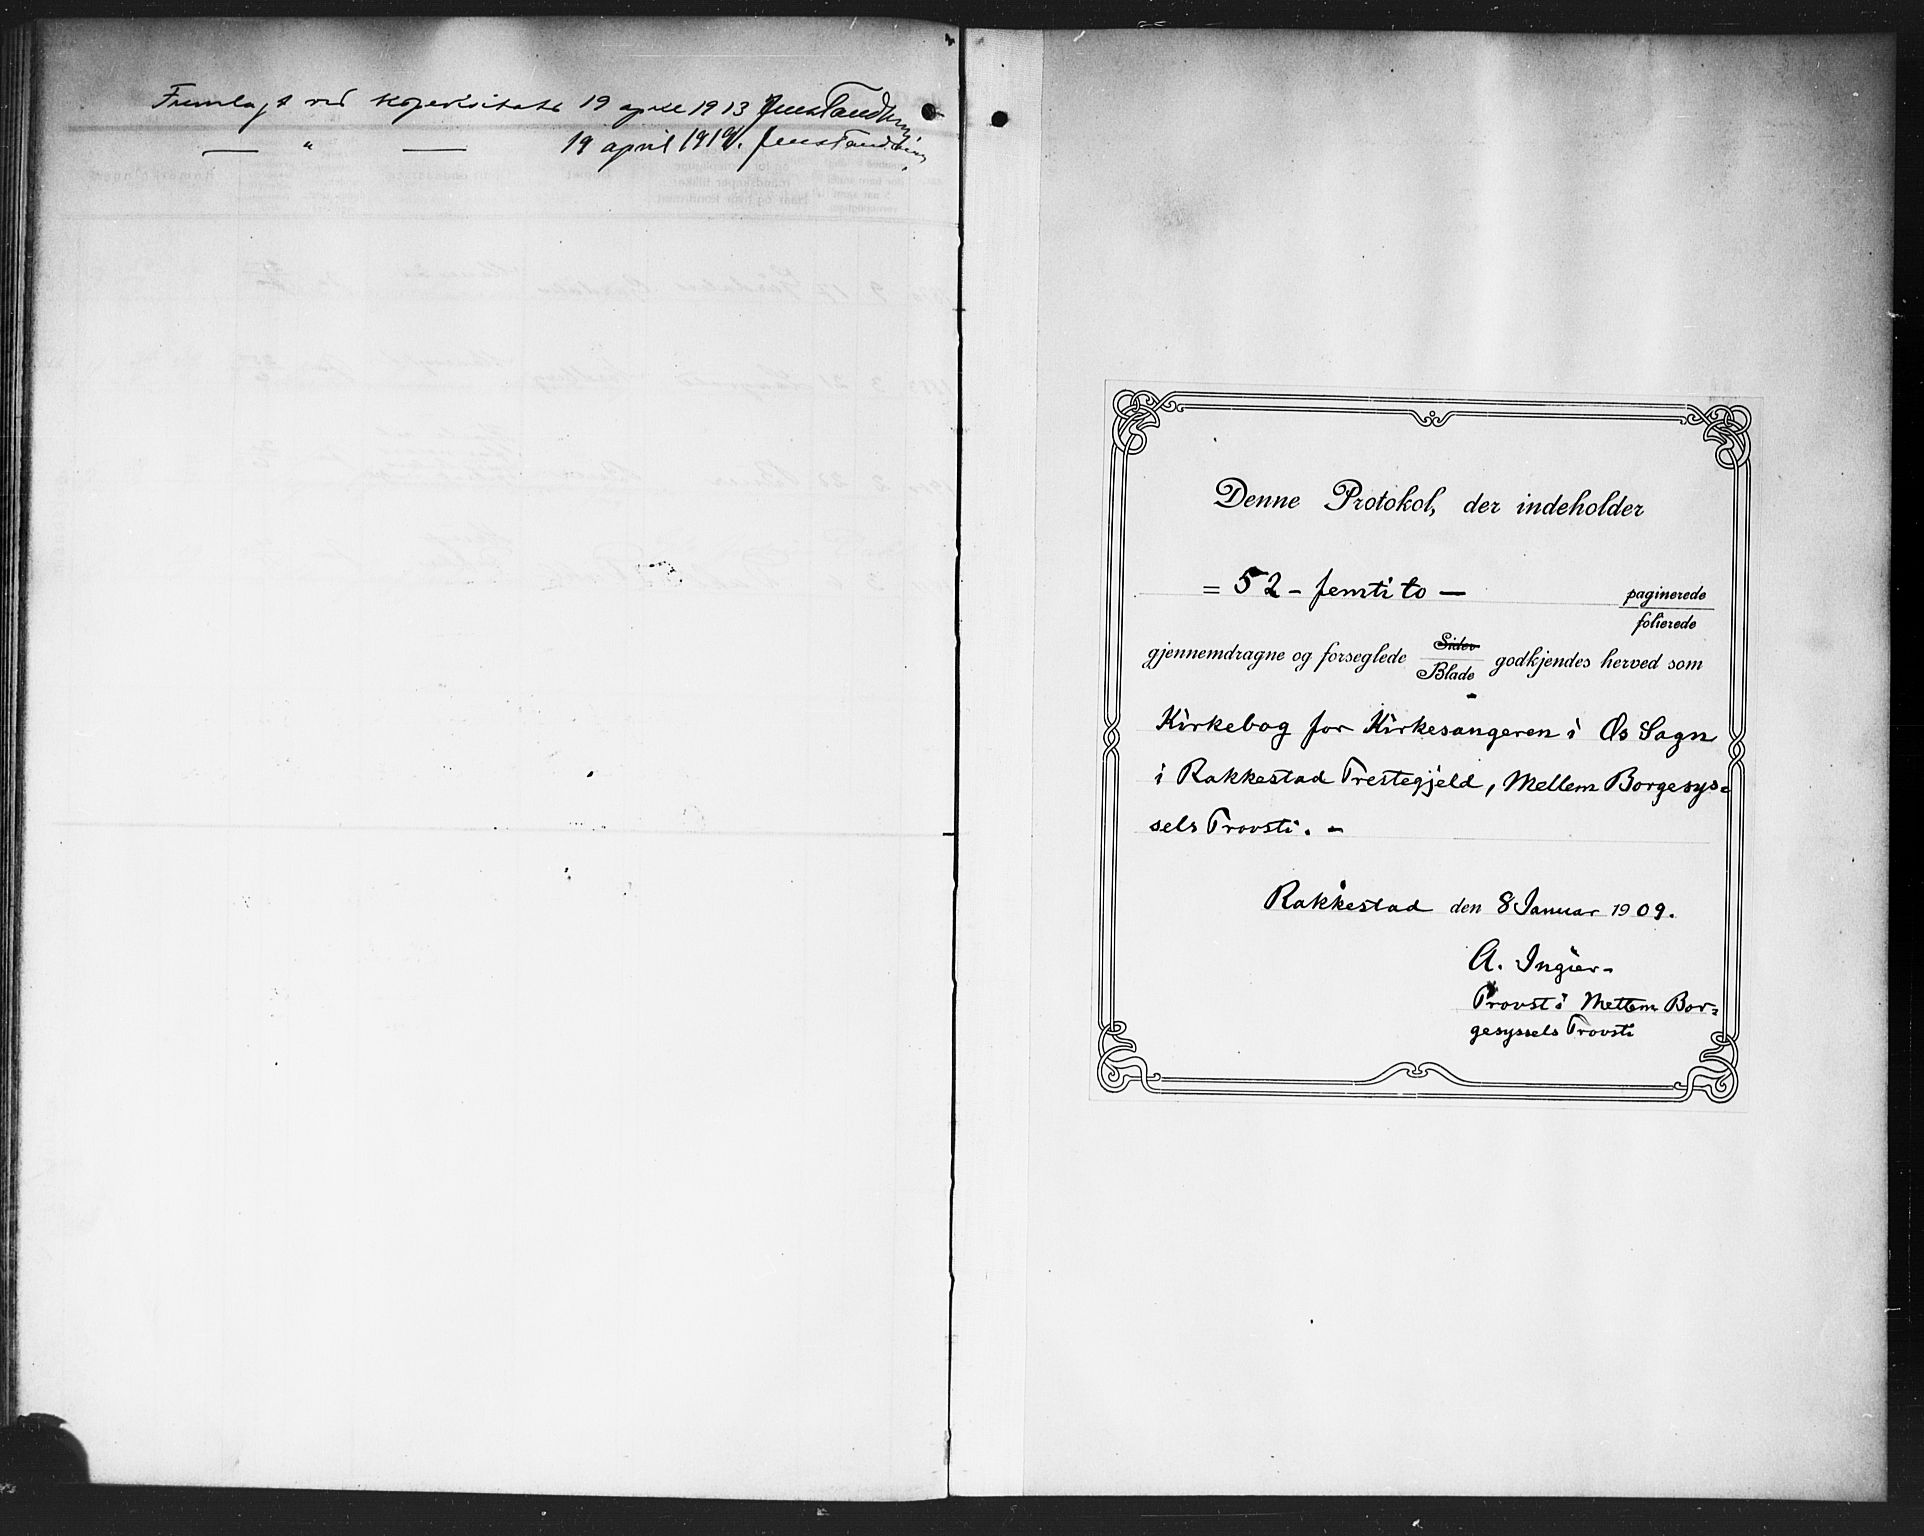 Fremlagt ved kopevisitats 19 april 1913 Jens Tandberg
— " — 19 april 1919. Jens Tandberg
Denne Protokol, der indeholder
= 52 - femti to —
paginerede
folierede
gjennemdragne og forseglede Sider Blade godkjendes herved som
Kirkebog for Kirkesangeren i Øs Sogn
i Rakkestad Prestegjeld, Mellem Borgesys=
sels Provsti. -
Rakkestad den 8 Januar 1909.
A. Ingier-
Provst i Mellem Bor=
gesyssels Provsti